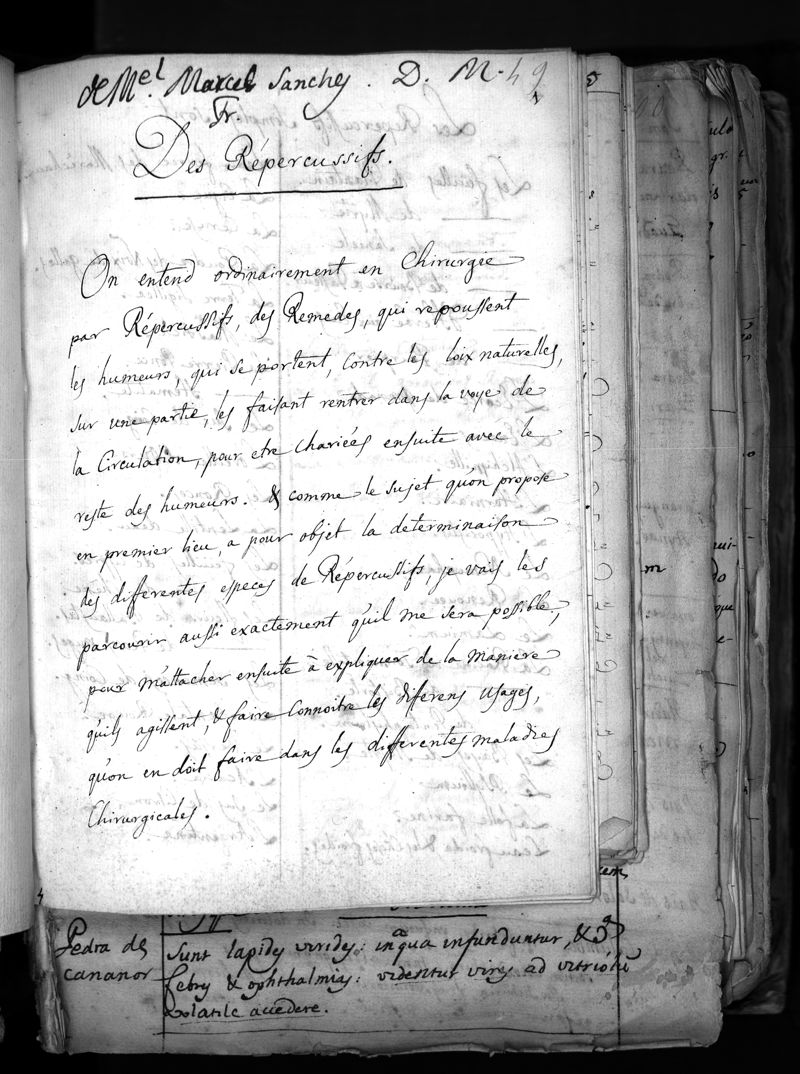 de Mel. Marcel Sanches. D. M. 49
Fr.
Des Répercussifs.
On entend ordinairement en Chirurgie
par Répercussifs, des Remedes, qui repoussent
les humeurs, qui se portent, contre les loix naturelles,
sur une partie, les faisant rentrer dans la voye de
la Circulation, pour etre chariées ensuite avec le
reste des humeurs. & comme le sujet qu'on propose
en premier lieu, a pour objet la determinaison
des differentes especes de Répercussifs, je vais les
parcourir aussi exactement qu'il me sera possible,
pour m'attacher ensuite à expliquer de la Maniere
qu'ils agissent, & faire Connoitre les diferens Usages,
qu'on en doit faire dans les differentes maladies
Chirurgicales.
Pedra de
Cananor
Sunt lapides virides: in aqua infunduntur, &
febres & ophthalmias: videntur vires ad vitriolū
volatile accedere.